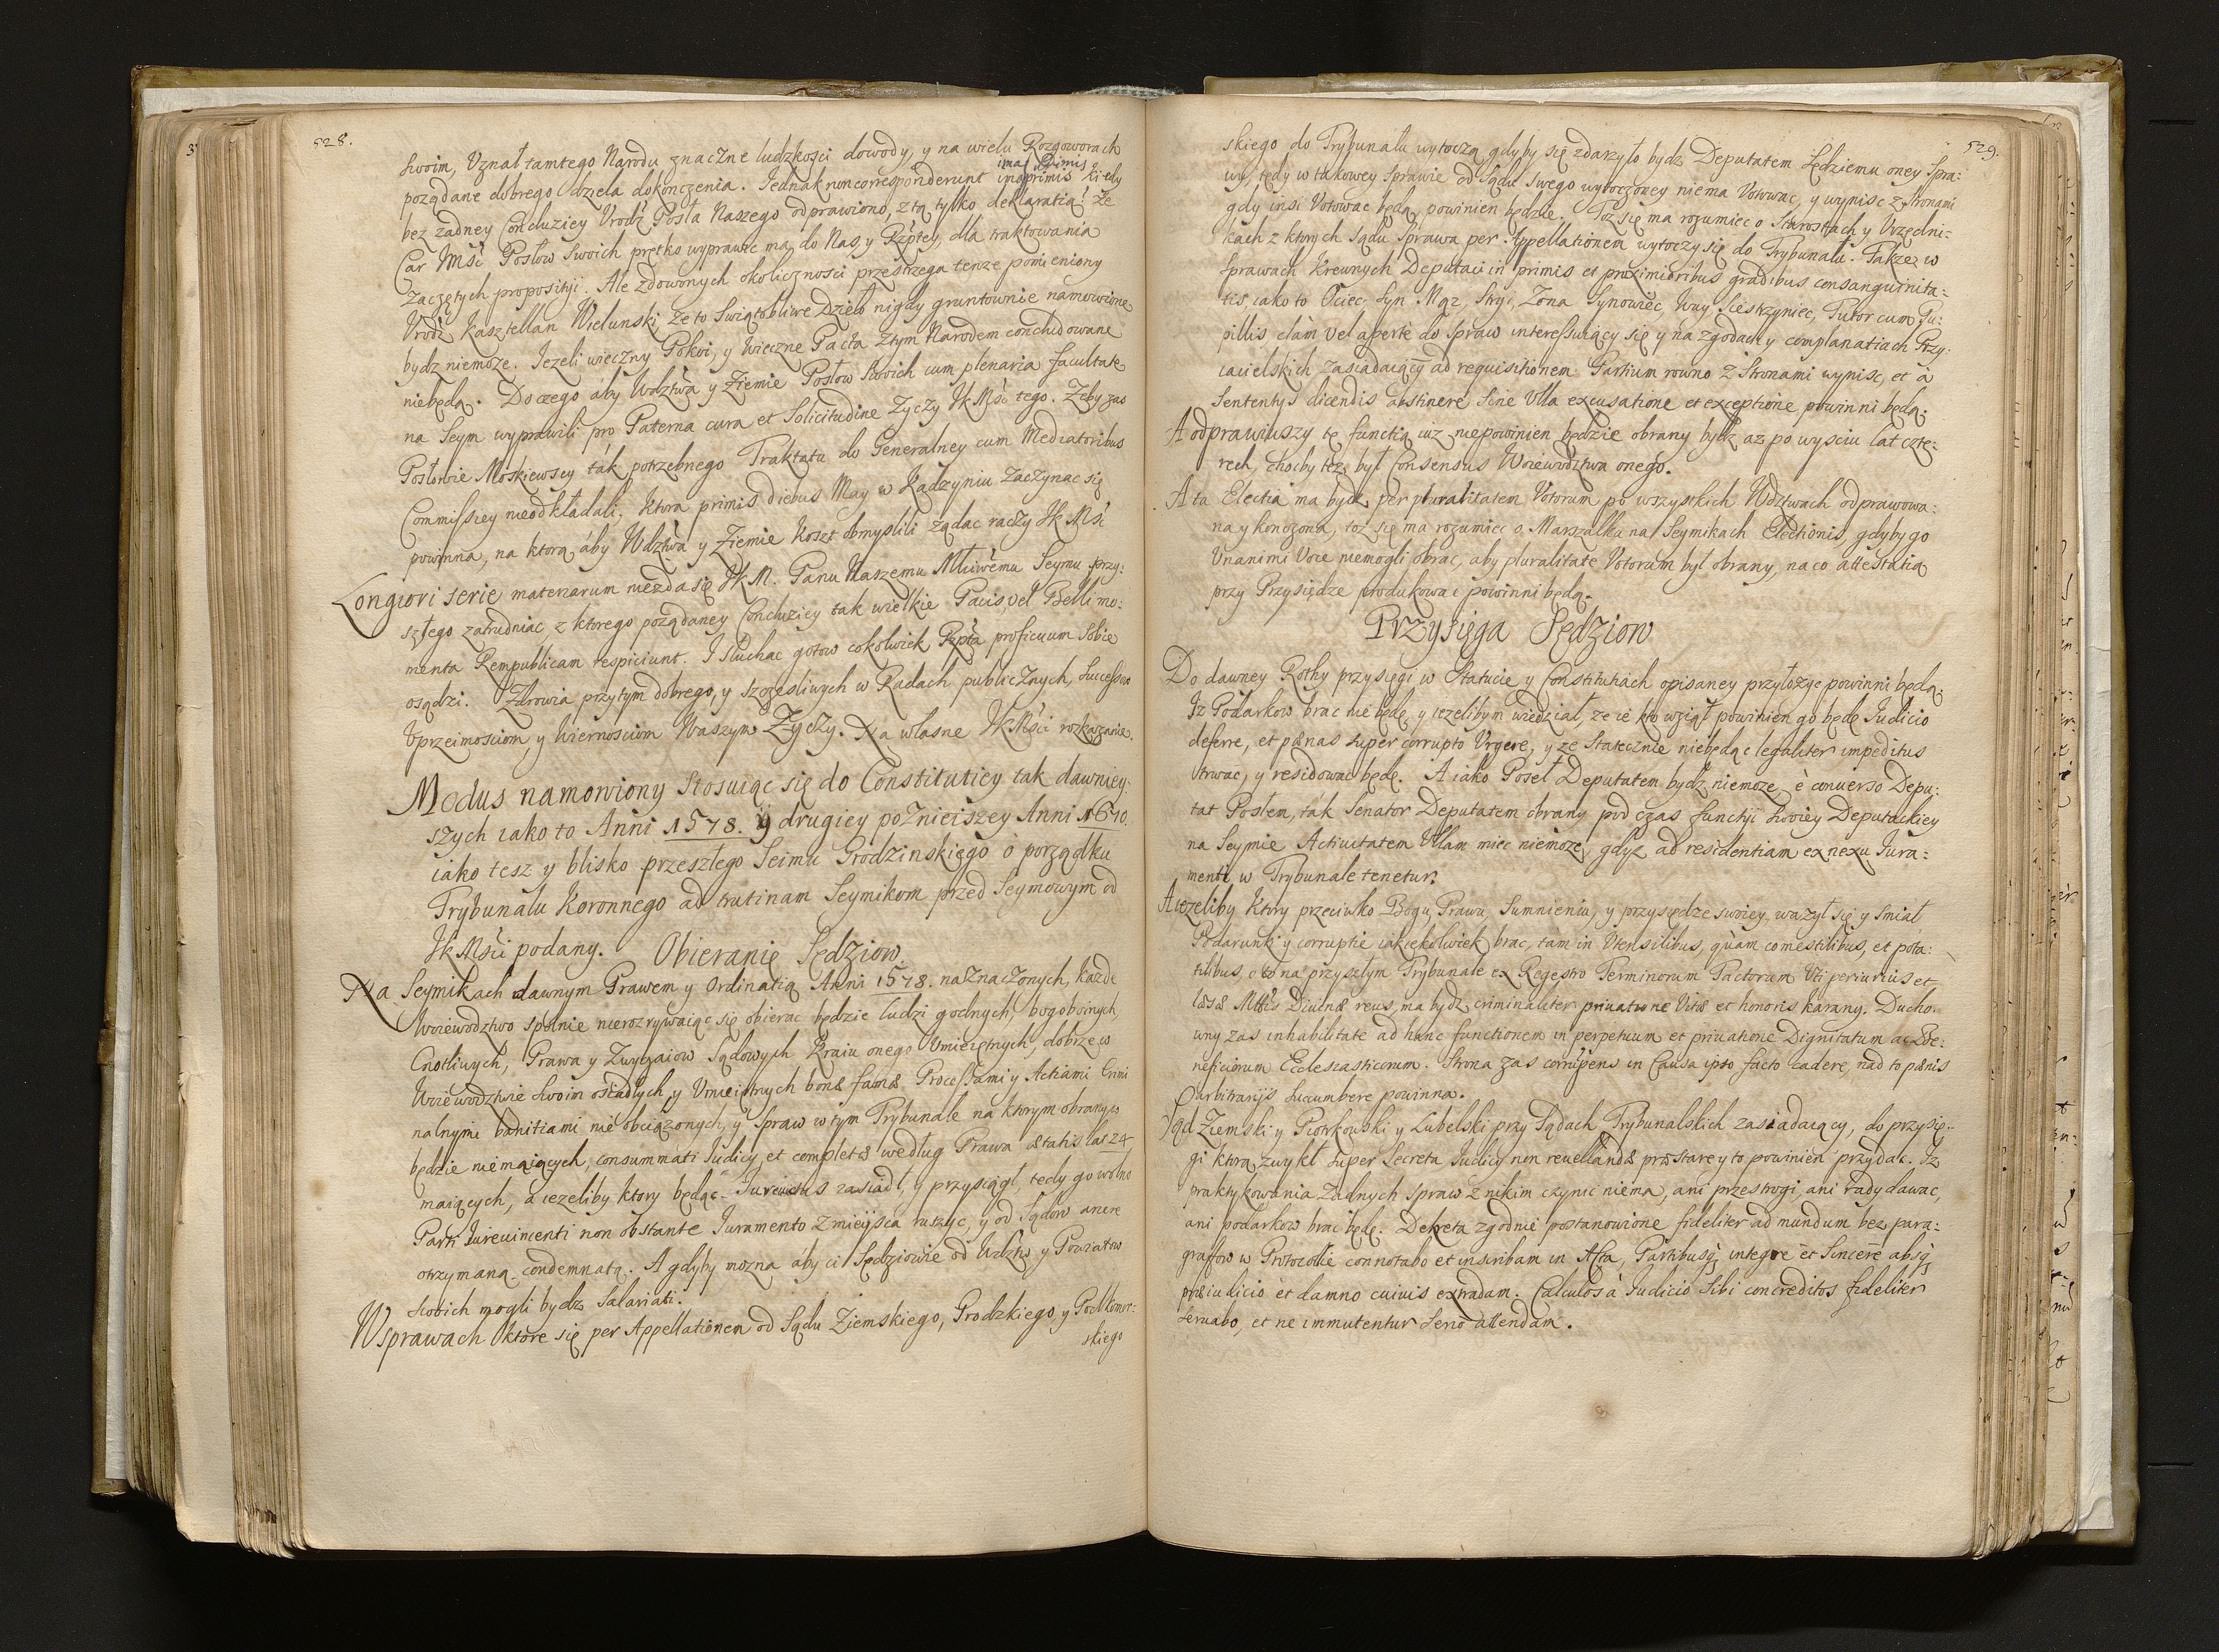 528.
Swoim, Vznał tamtego Narodu znaczne ludzkosci dowody, y na wielu Rozgoworach
pożądane dobrego dzieła dokonczenia. Jednak non corresponderunt ima primis kiedy
bez żadney Concluziey Vrodź Posła Naszego odprawiono, z tą tylko deklaratią: że
Car JMść Posłow Swoich prętko wyprawic ma do Nas, y Rzptey, dla traktowania
zaczętych propositji. Ale zdowonych okolicznosci przestrzega tenze pomieniony
Vrodź Kasztellan Wielunski że to Swiątobliwe Dzieło nigdy gruntownie namowione
bydz niemoze. Jezeli wieczny Pokoi, y Wieczne Pacta z tym Narodem concludowane
niebędą. Do czego aby Wdztwa y Ziemie Posłow Swoich cum plenaria facultate
na Seym wyprawili pro Paterna cura et Solicitudine Zyczy JKMść tego. Zeby zas
Posłowie Moskiewscy ták potrzebnego Traktatu do Generalney cum Mediatoribus
Commissiey nieodkładali, Ktora primis diebus May w Kadzyniu zaczynac się
powinna, na ktorą áby Wdztwa y Ziemie koszt obmyslili żądac raczy JKMść
Longiori serie materiarum niezda się JKM. Panu Naszemu Młłiwemu Seymu przy:
szłego zatrudniac, z ktorego pożądaney Concluziey tak wielkie Pacis vel Belli mo:
menta Rempublicam respiciunt. I słuchac gotow cokolwiek Rzpta proficuum Sobie
osądzi. Zdrowia przytym dobrego, y szczesliwych w Radach publicznych, Successow
Vprzeimosciom, y Wiernosciom Waszym Zyczy. Na własne JKMści rozkazanie.
Modus namowiony Stosuiąc się do Constituticy tak dawniey:
szych iako to Anni 1578. y drugiey poznieiszey Anni 1670.
iako tesz y blisko przeszłego Seimu Grodzinskiego o porządku
Trybunalu Koronnego ad trutinam Seymikom przed Seymowym od
JKMści podany. Obieranie Sędziow.
Na Seymikach dawnym Prawem y Ordinatią Anni 1578. naznaczonych, każde
Woiewodztwo spolnie nierozrywaiąc się obierac będzie ludzi godnych, bogoboinych,
Cnotliwych, Prawa y Zwyczaiow Sądowych Kraiu onego Vmieiętnych, dobrze w
Woiewodztwie Swoim osiadłych, y Vmieiętnych bonæ famæ. Processami y Actiami Crimi
nalnymi banitiami nie obciążonych, y Spraw w tym Trybunale na ktorym obranym
będzie niemaiących, consummati Iudicij, et completæ według Prawa ætatis lat 24
maiących, a iezeliby ktory będąc Iurevictus zasiadł, y przysiągł, tedy go wolno
Parti Iurevincenti non obstante Iuramento z mieysca ruszyc, y od Sądow arcere
otrzymaną condemnatą. A gdyby można áby ci Sędziowie od Wdztw y Powiatow
Swoich mogli bydz Salariati.
W sprawach ktore się per Appellationem od Sądu Ziemskiego, Grodzkiego, y Podkomor:
skiego
529.
skiego do Trybunału wytoczą gdyby się zdarzyło bydz Deputatem Sędziemu oney Spra:
wy, tedy w takowey Sprawie od Sądu Swego wytoczoney niema Votowac, y wynisc z Stronami
gdy insi Votowac będą powinien będzie. Toz się ma rozumiec o Starostach y Vrzędni:
kach z ktorych Sądu Sprawa per Appellationem wytoczy się do Trybunału. Takze w
Sprawach Krewnych Deputaci in primis et proximioribus gradibus consanguinita:
tis, iako to Ociec, Syn, Mąz, Stryi, Zona Synowiec, Wuy Siestrzyniec, Tutor cum Pu:
pillis clàm vel apertè do Spraw interessuiący się y na zgodach y complanatiach Przy:
iacielskich zasiadaiący ad requisitionem Partium rowno z Stronami wynisc, et à
Sententys dicendis abstinere sine Vlla excusatione et exceptione powinni będą.
A odprawiwszy tę functią iuz niepowinien będzie obrany bydz az po wysciu lat czte:
rech, chocby tez był Consensus Woiewodztwa onego.
A ta Electia ma bydz per pluralitatem Votorum po wszystkich Wdztwach odprawowa:
na y konczona, toz się ma rozumiec o Marszałku na Seymikach Electionis, gdyby go
Vnanimi Voce niemogli obrac, aby pluralitate Votorum był obrany, na co attestatią
przy Przysiędze produkowac powinni będą.
Przysięga Sędziow
Do dawney Rothy przysięgi w Statucie y Constitutiach opisaney przyłożyc powinni będą.
Iz Podarkow brac nie będę, y iezelibym wiedział, ze ie kto wziął powinien go będę Iudicio
deferre, et pænas super corrupto Vrgere, y ze Statecznie niebędąc legaliter impeditus
trwac, y residowac będę. A iako Poseł Deputatem bydz niemoze, è converso Depu:
tat Posłem, ták Senator Deputatem obrany pod czas functiji Swoiey Deputackiey
na Seymie Activitatem Vllam miec niemoze, gdyz ad residentiam ex nexu Iura:
menti w Trybunale tenetur.
A iezeliby Ktory przeciwko Bogu, Prawu, Sumnieniu, y przysiędze swoiey wazył się y smiał
Podarunki y corruptie iakiekolwiek brac, tàm in Vtensilibus, quàm comestilibus, et pota:
tilibus, o to na przyszłym Trybunale ex Regestro Terminorum Tactorum Vti periurius et
læsæ Mttis Divinæ reus, ma bydz criminaliter privatione Vitæ et honoris karany. Ducho:
wny zas inhabilitate ad hanc functionem in perpetuum et privatione Dignitatum ac Be:
neficiorum Ecclesiasticorum. Strona zas corrupens in Causa ipso facto cadere, nad to pænis
arbitrarijs succumbere powinna.
Sąd Ziemski y Piotrkowski y Lubelski przy Sądach Trybunalskich zasiadaiący, do przysię:
gi ktorą zwykł super Secreta Iudicij non revellandæ præstare y to powinien przydac. Iz
praktykowania Zadnych Spraw z nikim czynic niema, ani przestrogi, ani rady dawac,
ani podarkow brac będę. Dekreta zgodnie postanowione fideliter ad mundum bez para:
graffow w Protocolie connotabo et inscribam in Acta, Partibusq integrè et Sincerè absq
præiudicio et damno cuivis extradam. Calculos à Iudicio Sibi concreditos fideliter
servabo, et ne immutentur Serio attendam.